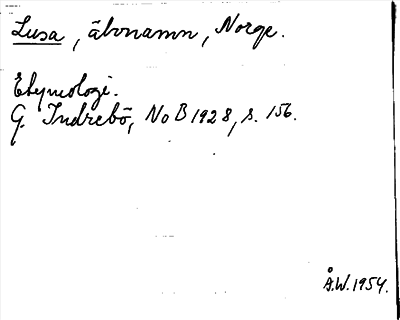 Lusa, åbvnamn, Norge.
Etymologi.
G. Indrebö, NoB 1928, s. 156.
Å.W. 1954.